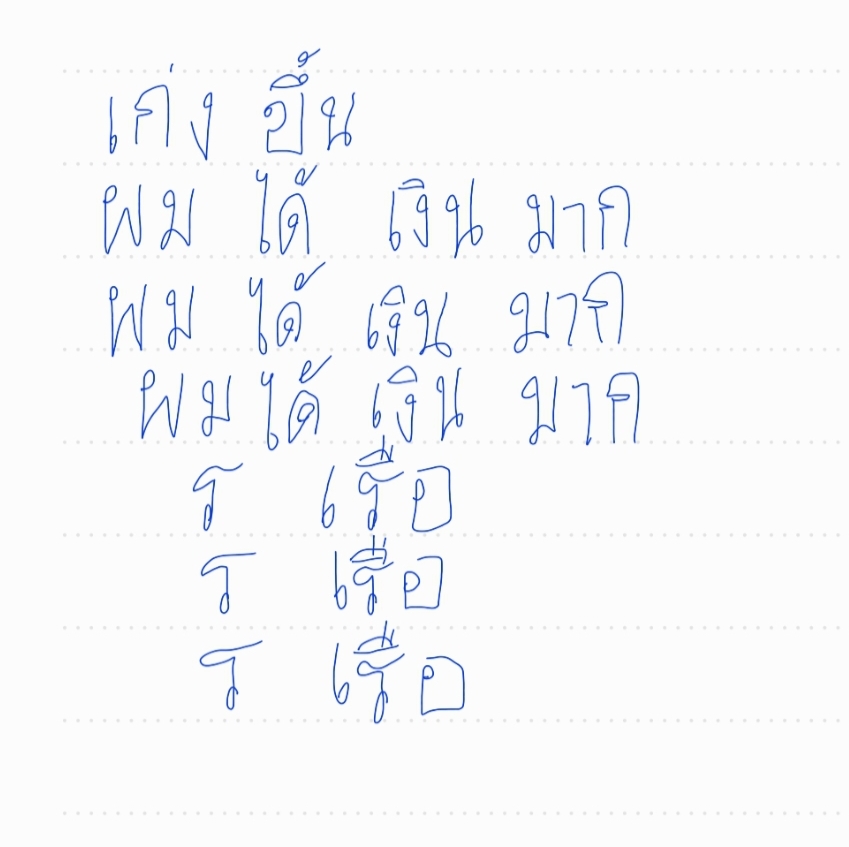 เก่ง ขึ้น
ผม ได้ เงิน มาก
ผม ได้ เงิน มาก
ผม ได้ เงิน มาก
ร เรือ
ร เรือ
ร เรือ